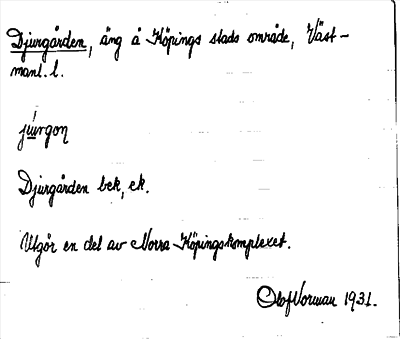 Djurgården, äng å Köpings stads område, Väst-
manl. l.
jurgon
Djurgården bek, ek.
Utgör en del av Norra Köpingskomplexet.
Olof Norman 1931.